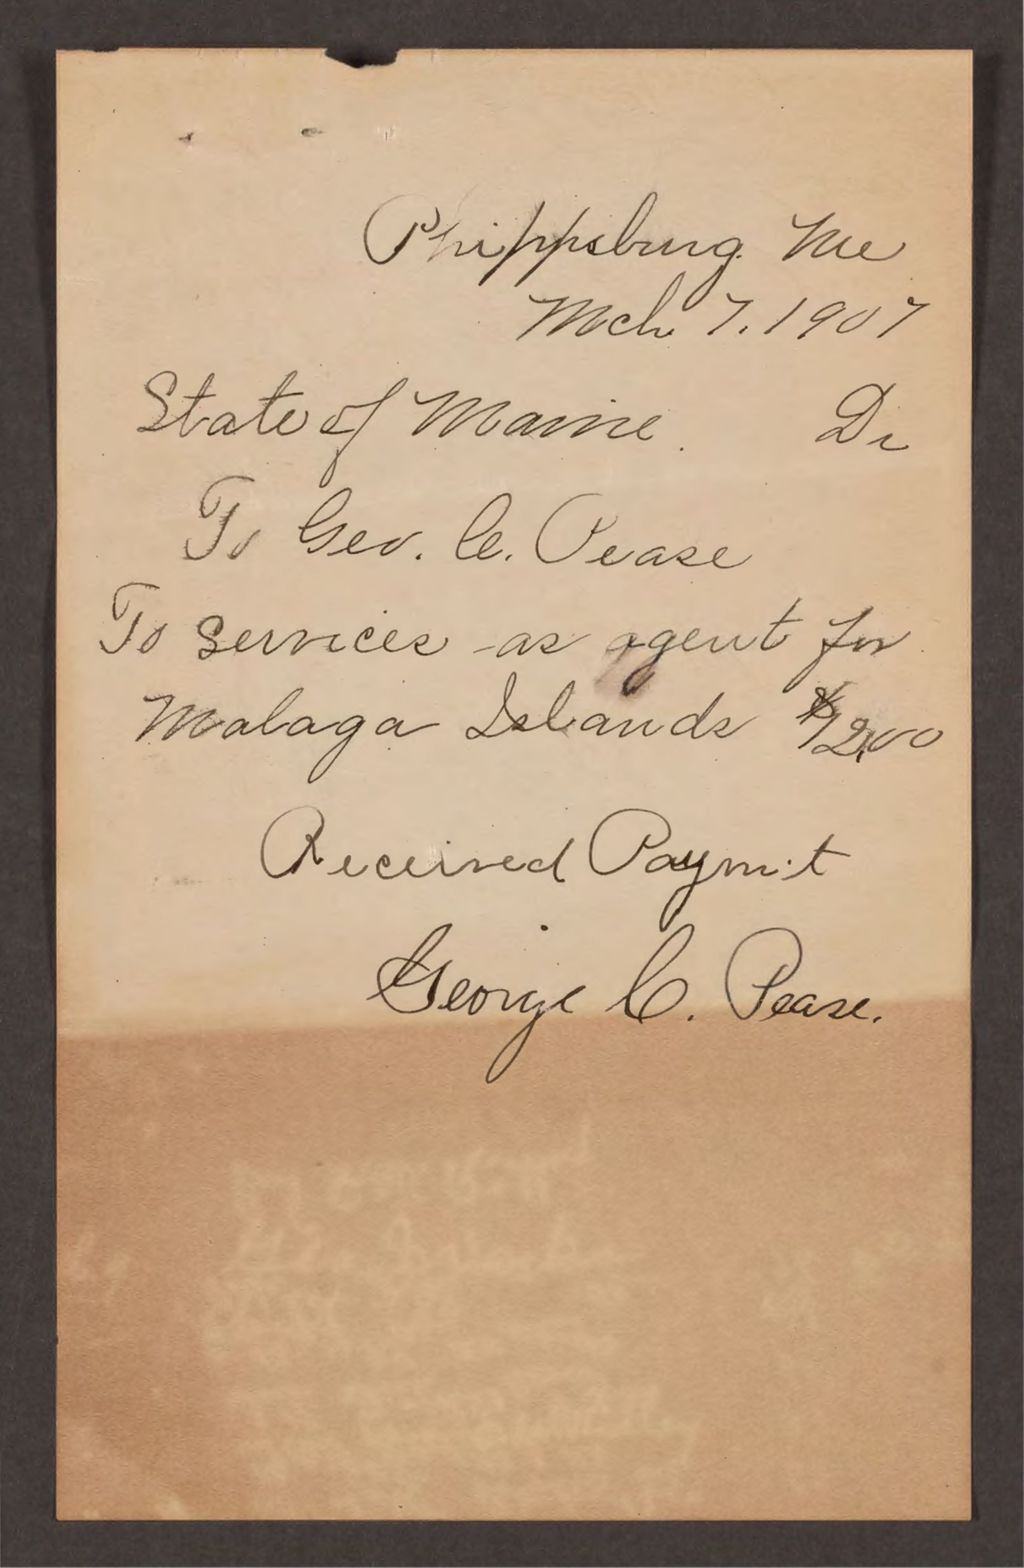 Phippsburg Me
Mch 7. 1907
State of Maine. Dr
To Geo. C. Pease
To services as agent for
Malaga Islands $12.00
Received Paym't
George C. Pease.